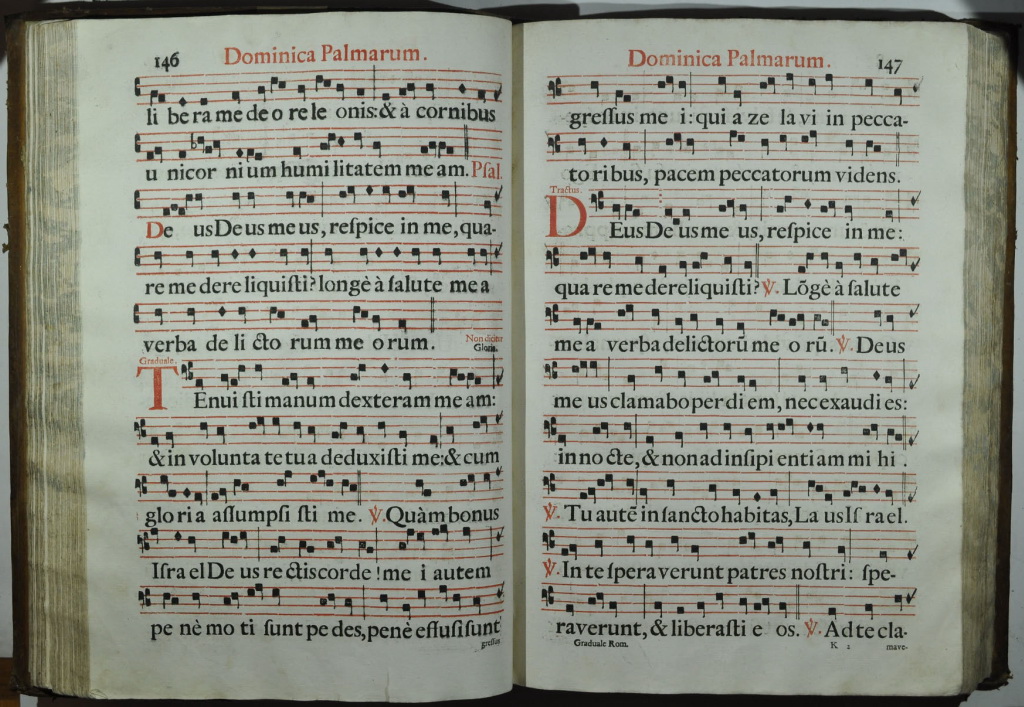 146 Dominica Palmarum.
li be ra me de o re le onis: & à cornibus
u nicor nium humi litatem me am. Psal.
De us Deus meus, respice in me, qua-
re me dere liquisti? longè à salute mea
verba de li cto rum me orum. Non dicitur Gloria.
Graduale.
TEnui sti manum dexteram me am:
& in volunta te tu a deduxisti me: & cum
glo ri a assumpsi sti me. ℣. Quàm bonus
Isra el De us re ctis corde! me i autem
pe nè mo ti sunt pe des, penè effusi sunt
gressus
Dominica Palmarum. 147
gressus me i: qui a ze la vi in pecca-
to ri bus, pacem peccatorum videns.
Tractus.
DEus De us me us, respice in me:
qua re me dereliquisti? ℣. Lõgè à salute
me a verba delictorū me o rū. ℣. Deus
me us clamabo per di em, nec exaudi es:
in no cte, & non ad insipi enti am mi hi.
℣. Tu autē in sancto habitas, La us Is rael.
℣. In te spera verunt patres nostri: spe-
raverunt, & liberasti e os. ℣. Ad te cla-
Graduale Rom. K 2 mave-